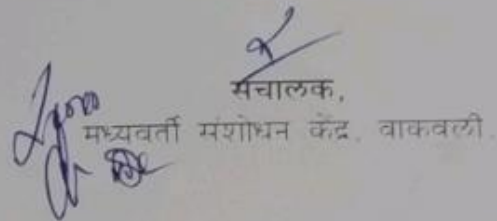 संचालक,
मध्यवर्ती संशोधन केंद्र, वाकवली.